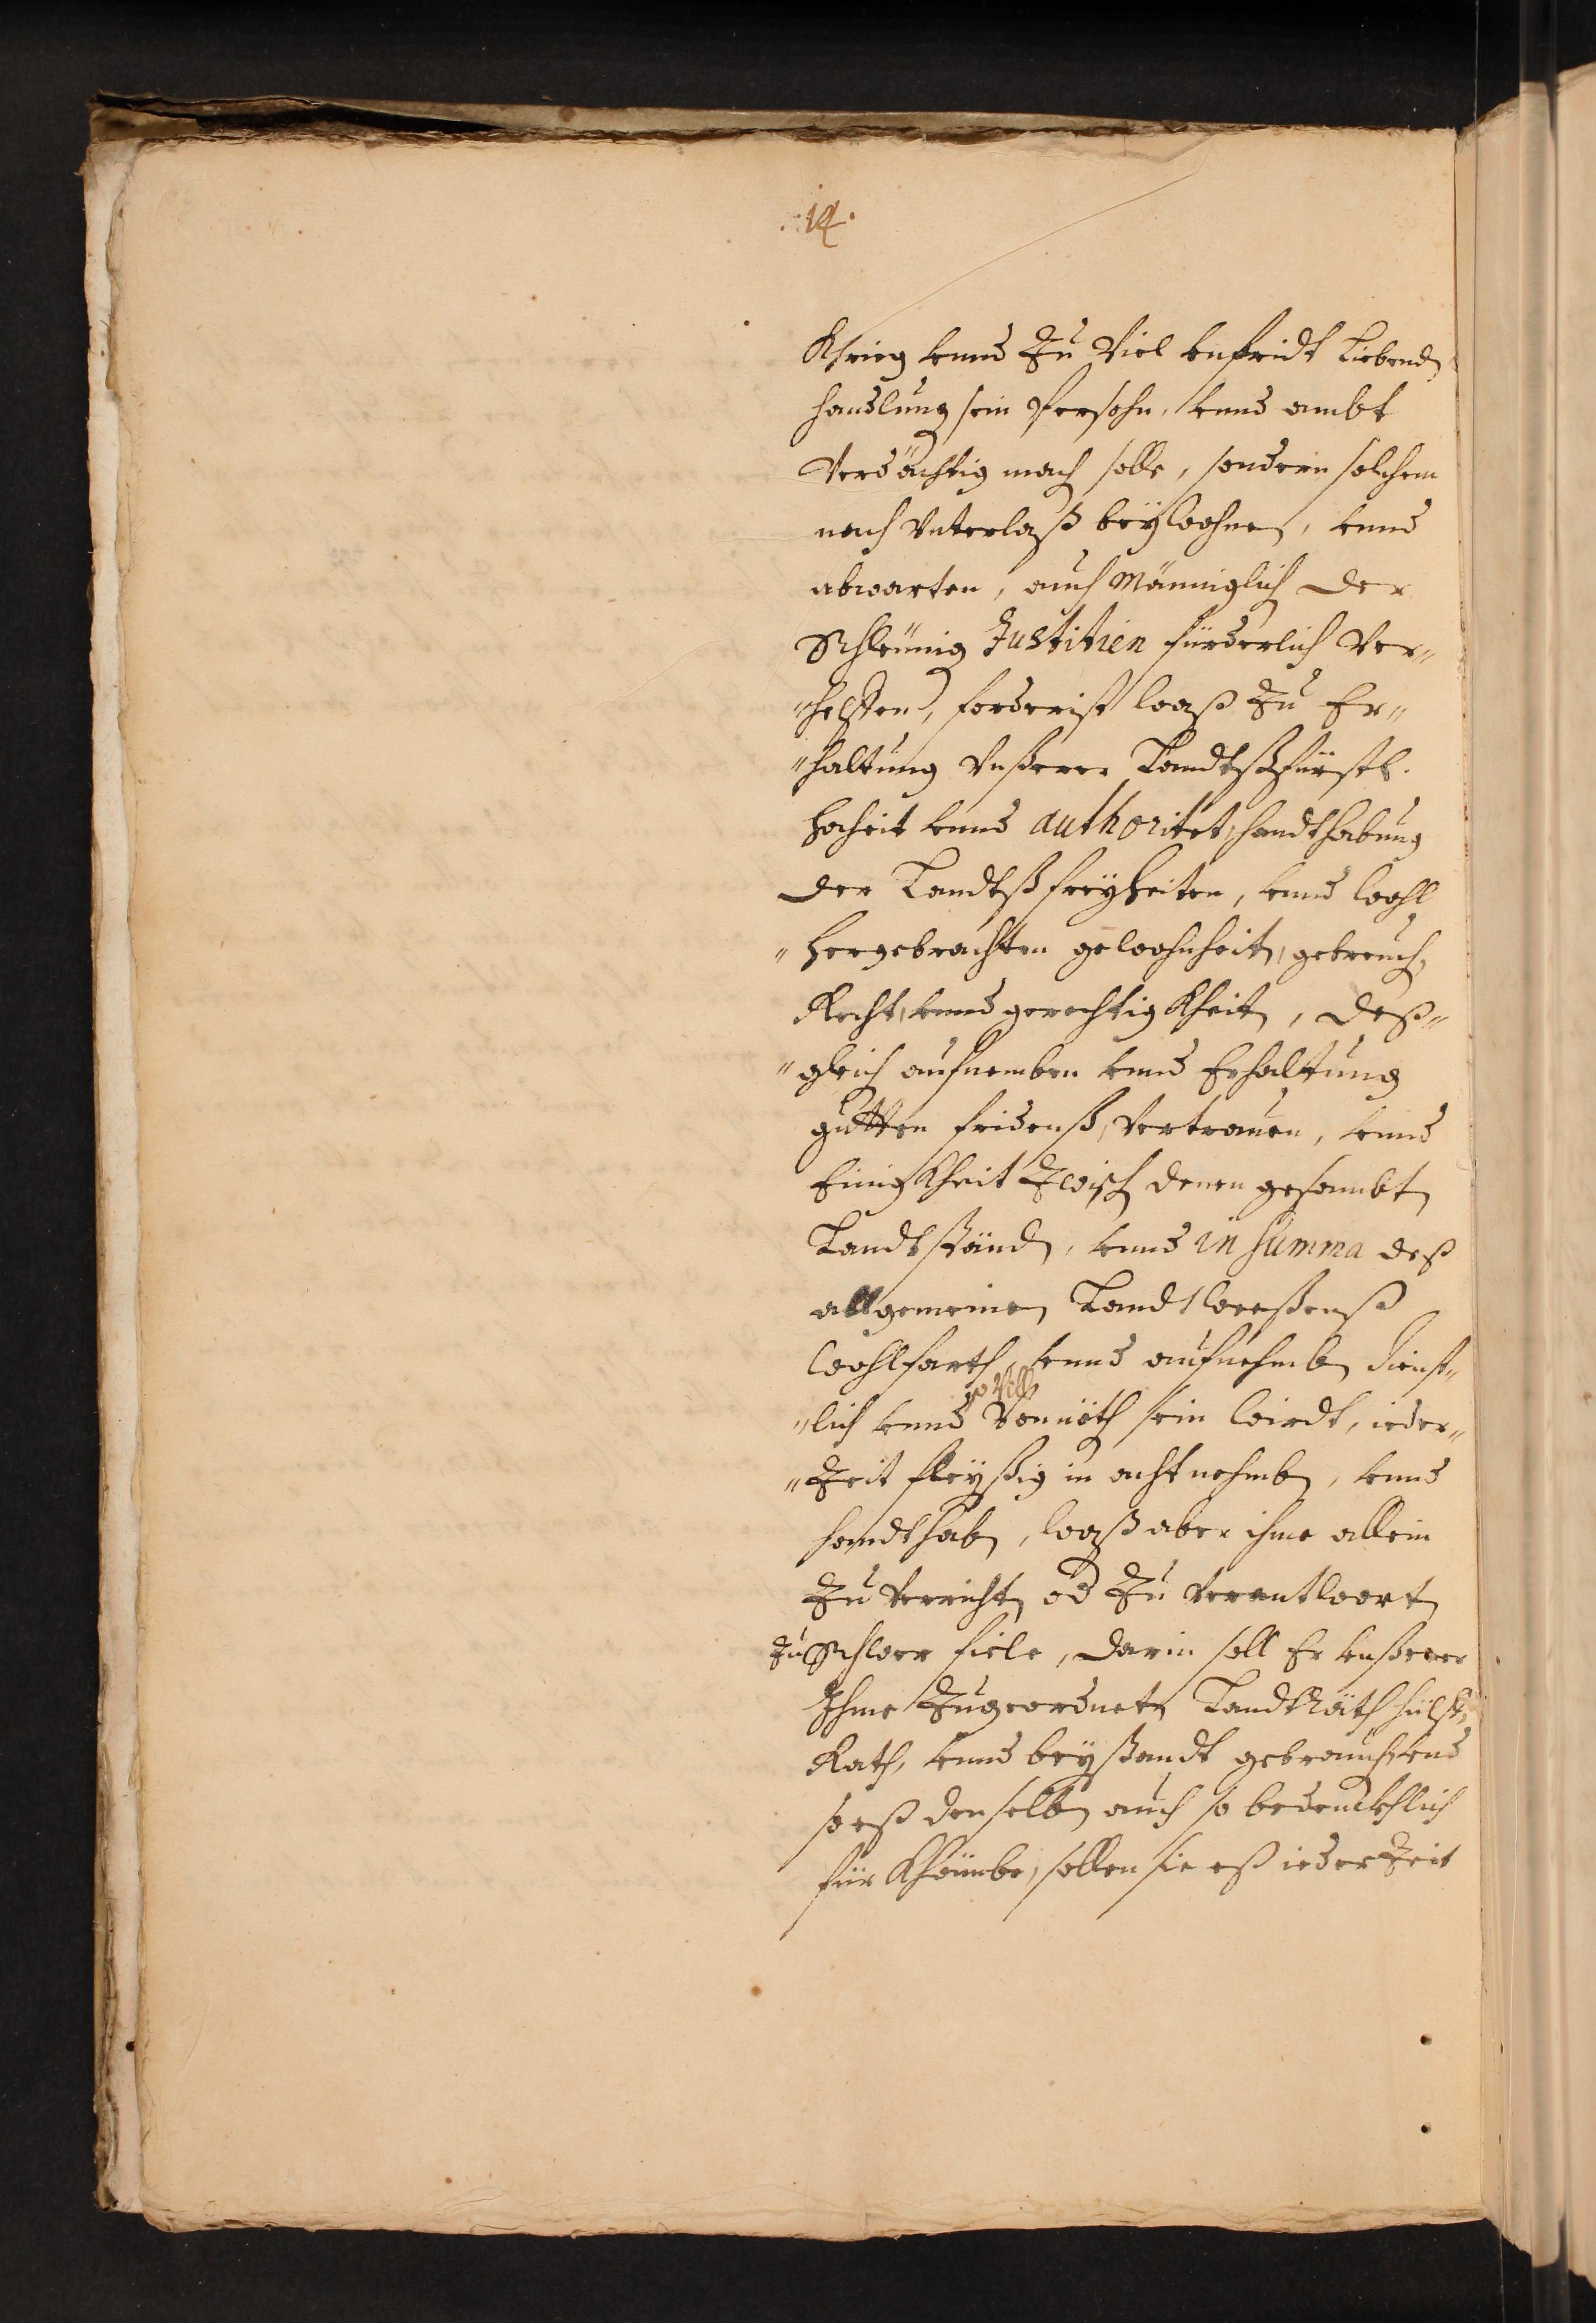 .14.
Khrieg vnnd Zu Viel vnfridt Liebend
handlung sein Persohn, vnnd ambt
Verdächtig mach solle, sondern solchem
nach Vnterlaß beÿwohnen, vnnd
abwarten, auch Männiglich der
Schleünig Justitien fürderlich Ver„
„helffen, forderist waß Zu Er„
„haltung Vnßerer Landtsfürstl.
hocheit vnnd authoritet, handthabung
der Landtßfreÿheiten, vnnd wohl
„hergebrachten gewohnheit, gebreuch,
Recht, vnnd gerechtigKheit, deß„
„gleich aufnemben vnnd Erhaltung
gutten fridenß, Vertrauen, vnnd
EinigKheit Zwisch denen gesambt
Landtständ, vnnd in summa deß
allgemeinen Landtweeßenß
wohlfarth, vnnd aufnehmb dienst„
so Vill
„lich vnnd Vonnöth sein wirdt, ieder„
„Zeit fleÿßig in acht nehmb, vnnd
handthab, waß aber ihme allein
Zu Verricht od Zu Verantwort
Zu Schwer fiele, darin soll Er vnßerer
Ihme Zugeordnet Landträth hülff,
Rath, vnnd beÿstandt gebrauch, vnd
so eß denselb auch so bedenckhlich
für Khäumbe, sollen sie eß iederZeit